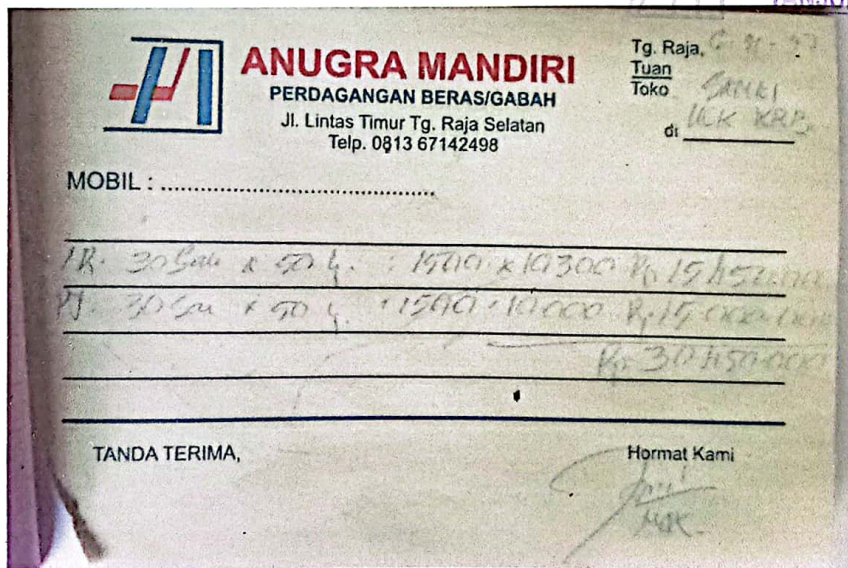 ANUGRA MANDIRI
PERDAGANGAN BERAS/GABAH
Jl. Lintas Timur Tg. Raja Selatan
Telp. 0813 67142498
Tg. Raja,
Tuan
Toko
di
MOBIL : ........................................
IR. 30 x 50 : 1500 x 10300 Rp 15.450.000
30 x 50 : 1500 x 10000 Rp 15.000.000
Rp 30.450.000
TANDA TERIMA,
Hormat Kami